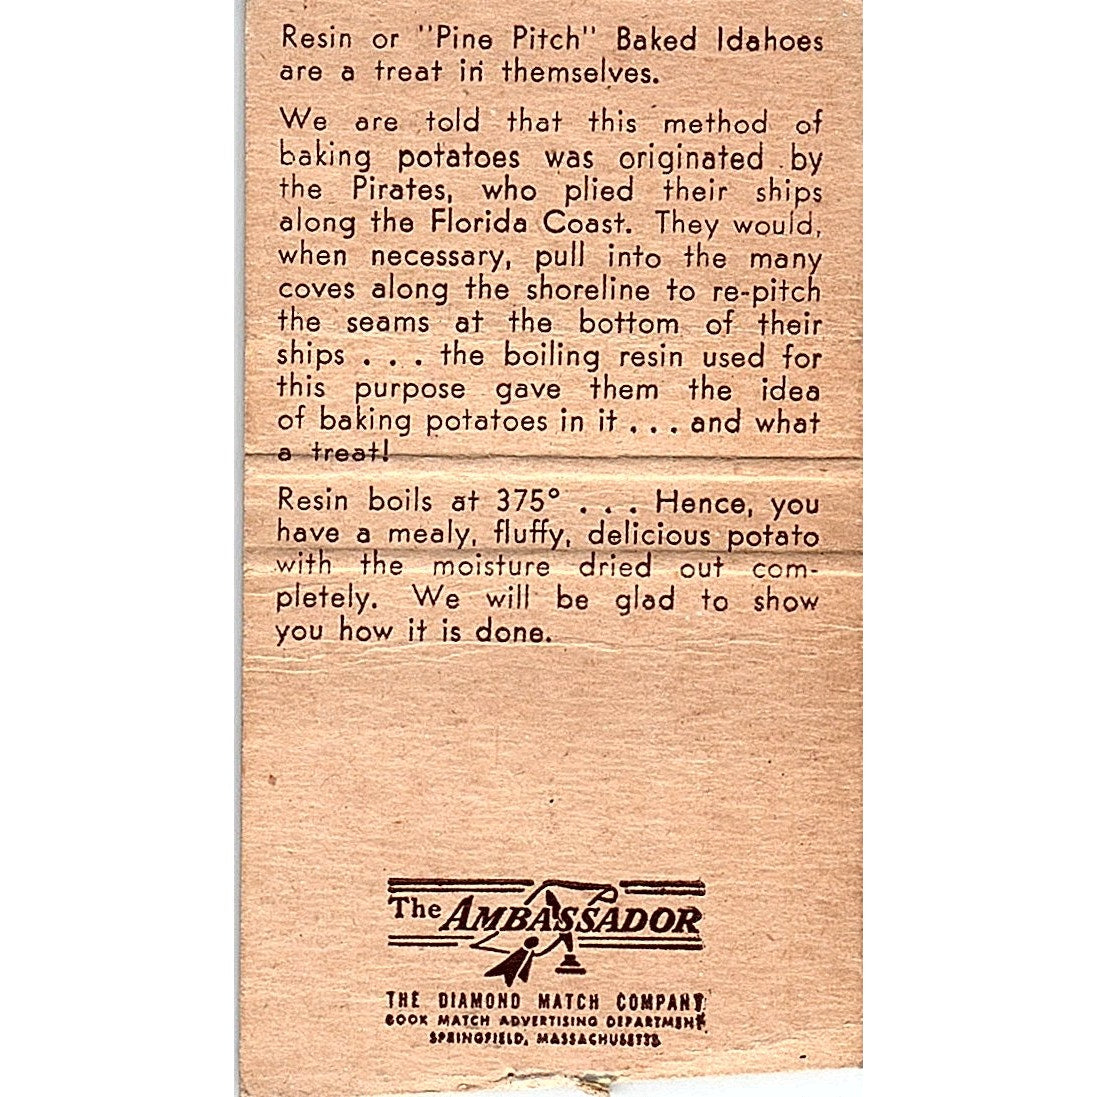 Resin or "Pine Pitch" Baked Idahoes
are a treat in themselves.
We are told that this method of
baking potatoes was originated by
the Pirates, who plied their ships
along the Florida Coast. They would,
when necessary, pull into the many
coves along the shoreline to re-pitch
the seams at the bottom of their
ships . . . the boiling resin used for
this purpose gave them the idea
of baking potatoes in it . . . and what
a treat!
Resin boils at 375° . . . Hence, you
have a mealy, fluffy, delicious potato
with the moisture dried out com-
pletely. We will be glad to show
you how it is done.
The AMBASSADOR
THE DIAMOND MATCH COMPANY
BOOK MATCH ADVERTISING DEPARTMENT
SPRINGFIELD, MASSACHUSETTS